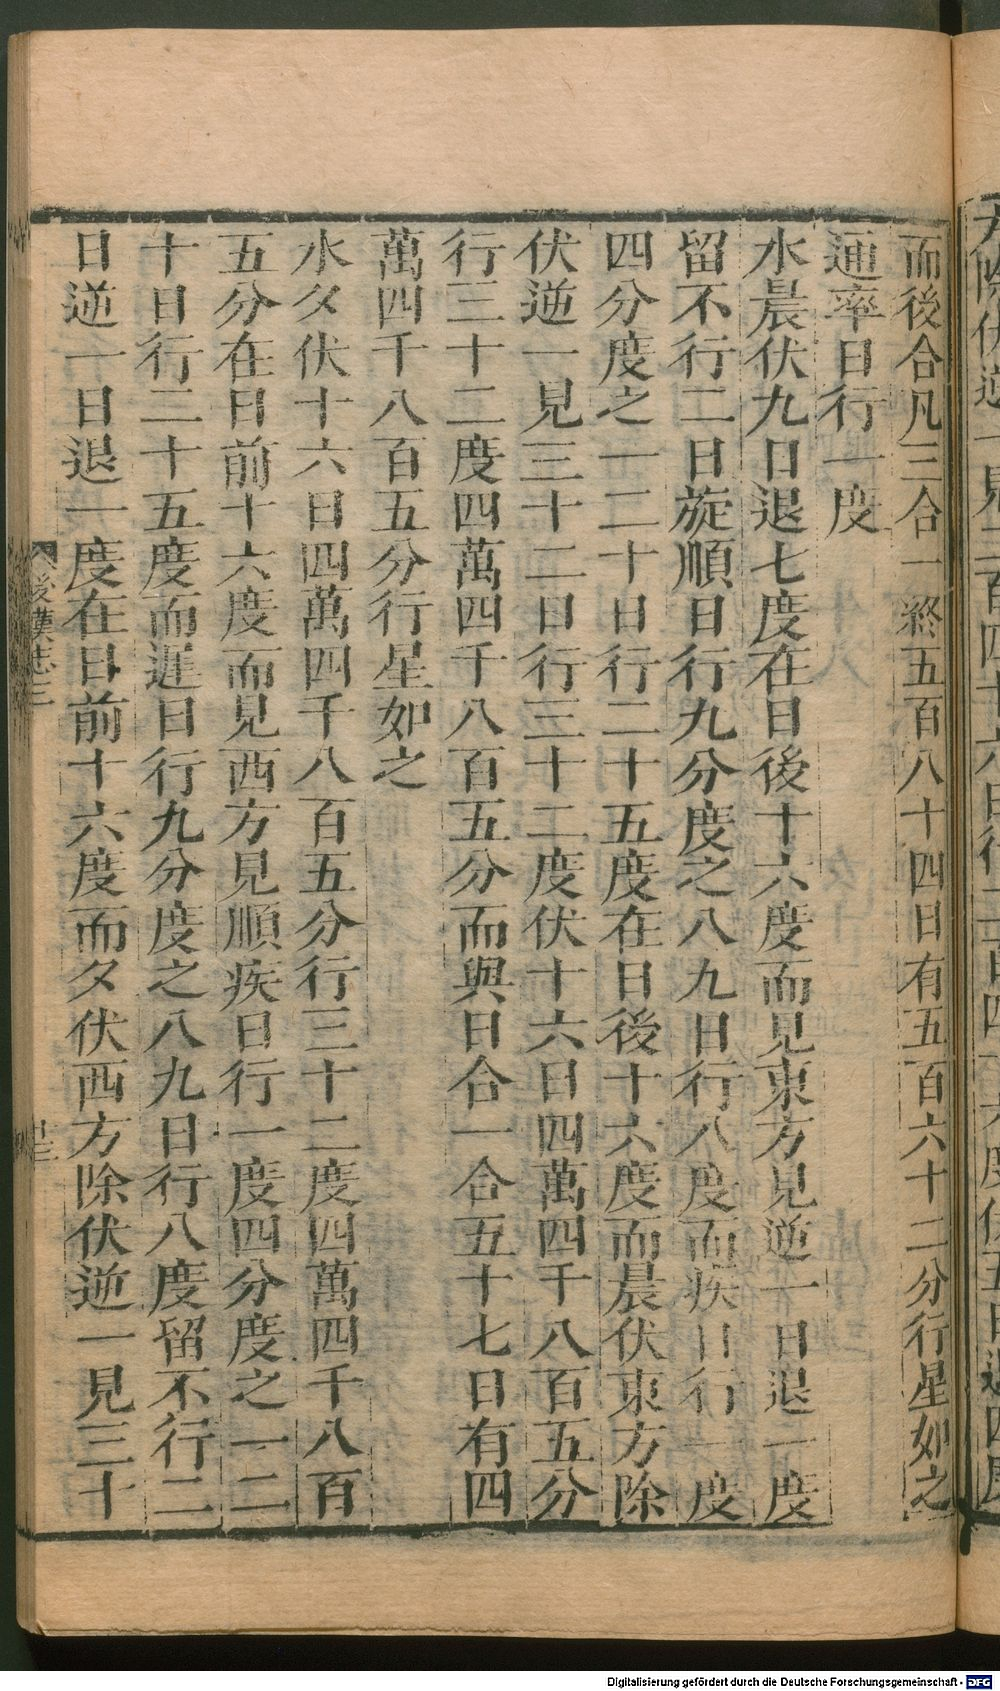 而後合凡三合一終五百八十四日有五百六十二分行星如之
通率日行一度
水晨伏九日退七度在日後十六度而見東方見逆一日退一度
留不行二日旋順日行九分度之八九日行八度而疾日行一度
四分度之一二十日行二十五度在日後十六度而晨伏東方除
伏逆一見三十二日行三十二度伏十六日四萬四千八百五分
行三十二度四萬四千八百五分而與日合一合五十七日有四
萬四千八百五分行星如之
水夕伏十六日四萬四千八百五分行三十二度四萬四千八百
五分在日前十六度而見西方見順疾日行一度四分度之一二
十日行二十五度而遲日行九分度之八九日行八度留不行二
日逆一日退一度在日前十六度而夕伏西方除伏逆一見三十
後漢志三
Digitalisierung gefördert durch die Deutsche Forschungsgemeinschaft - DFG